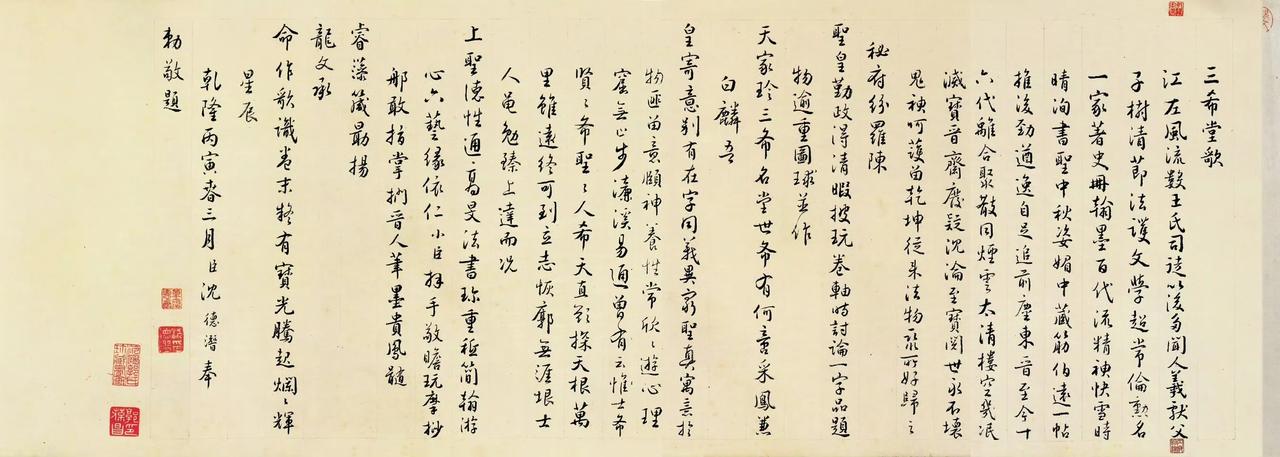 三希堂歌
江左風流數王氏司徒以後多聞人羲獻父
子樹清節法護文學超常倫勳名
一家著史冊翰墨百代流精神快雪時
晴洵書聖中秋姿媚中藏筋伯遠一帖
推後勁遒逸自足追前塵東晉至今十
六代離合聚散同煙雲太清樓空幾泯
滅寶晉齋廢疑沈淪至寶閱世永不壞
鬼神呵護留乾坤從來法物聚所好歸之
秘府紛羅陳
聖皇勤政得清暇披玩卷軸時討論一字品題
物逾重圖球並作
天家珍三希名堂世希有何啻采鳳兼
白麟吾
皇寄意別有在字同義異窮聖真寓言於
物匪留意頤神養性常欣欣遊心理
窟無止步濂溪易通曾有云惟士希
賢賢希聖聖人希天直欲探天根萬
里雖遠終可到立志恢廓無涯垠士
人黽勉臻上達而況
上聖德性通高旻法書珍重祗簡翰游
心六藝緣依仁小臣拜手敬瞻玩摩抄
那敢指掌捫晉人筆墨貴風髓
睿藻箴勗揚
龍文承
命作歌識卷末將有寶光騰起爛爛輝
星辰
乾隆丙寅春三月臣沈德潛奉
勅敬題